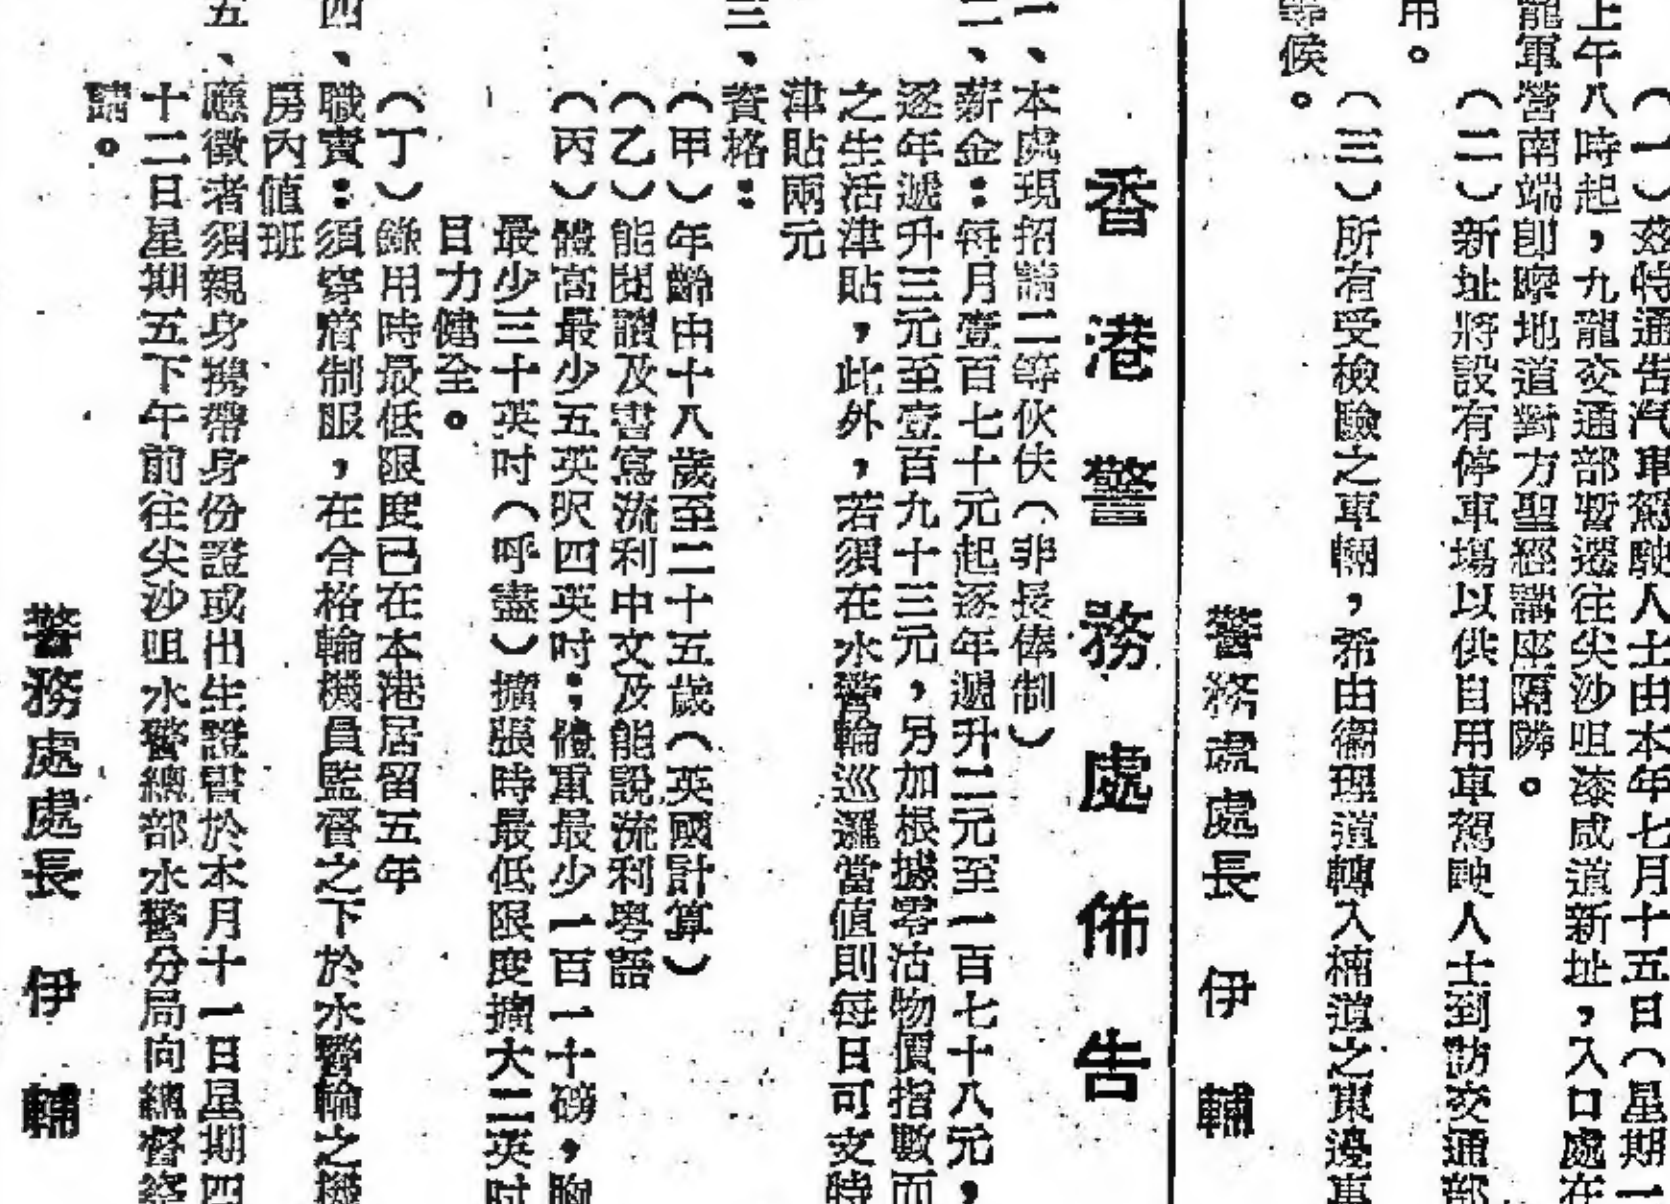 （一）茲特通告汽車駕駛人士由本年七月十五日（星期一
上午八時起，九龍交通部暫遷往尖沙咀漆咸道新址，入口處在
龍軍營南端即隙地道對方聖經講座隔隣。
（二）新址將設有停車場以供自用車駕駛人士到訪交通部
用。
（三）所有受檢驗之車輛，希由衞理道轉入楠道之東邊車
等候。
警務處處長 伊輔
香港警務處佈告
一、本處現招請二等伙伕（非長俸制）
二、薪金：每月壹百七十元起逐年遞升二元至一百七十八元，
逐年遞升三元至壹百九十三元，另加根據零沽物價指數而
之生活津貼，此外，若須在水警輪巡邏當值則每日可支特
津貼兩元
三、資格：
（甲）年齡由十八歲至二十五歲（英國計算）
（乙）能閱讀及書寫流利中文及能說流利粵語
（丙）體高最少五英呎四英吋；體重最少一百一十磅，胸
最少三十英吋（呼盡）擴張時最低限度擴大二英吋
目力健全。
（丁）錄用時最低限度已在本港居留五年
四、職責：須穿着制服，在合格輪機員監督之下於水警輪之機
房內值班
五、應徵者須親身携帶身份證或出生證書於本月十一日星期四
十二日星期五下午前往尖沙咀水警總部水警分局向總督察
警務處處長 伊輔